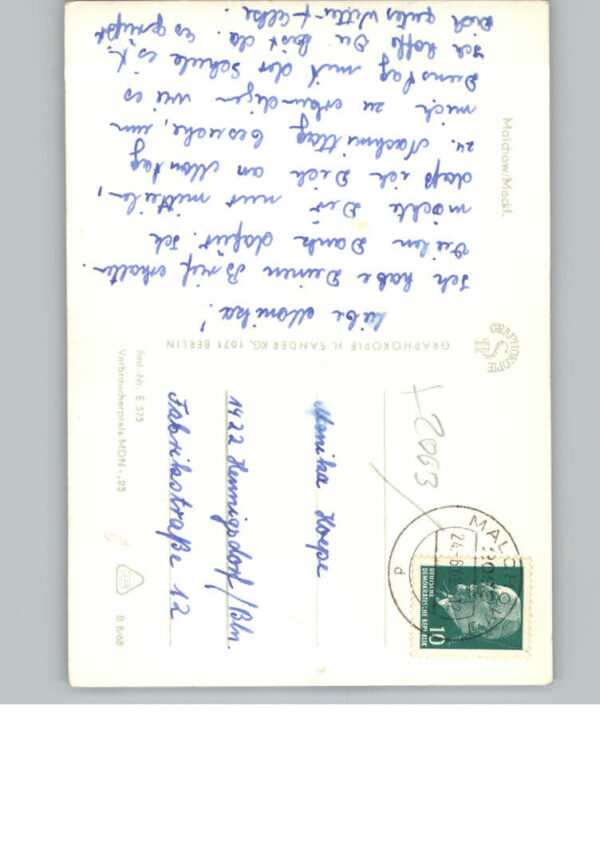 Malchow/Meckl.
Liebe Monika!
Ich habe Deinen Brief erhalten.
Vielen Dank dafür. Ich
möchte Dir nur mitteilen,
daß ich Dich am Montag
Nachmittag besuche, um
mich zu erkundigen wie es
Dienstag mit der Schule ist.
Ich hoffe Du bist da. Es grüßt
Dich
GRAPHOKOPIE H. SANDER KG, 1071 BERLIN
GRAPHOKOPIE
Best.-Nr. E 575
Verbraucherpreis MDN -,25
B 8/68
Monika Hoepe
1422 Hennigsdorf/Bln.
Fabrikstraße 12
+2063
MALCHOW
DEUTSCHE
DEMOKRATISCHE REPUBLIK
10